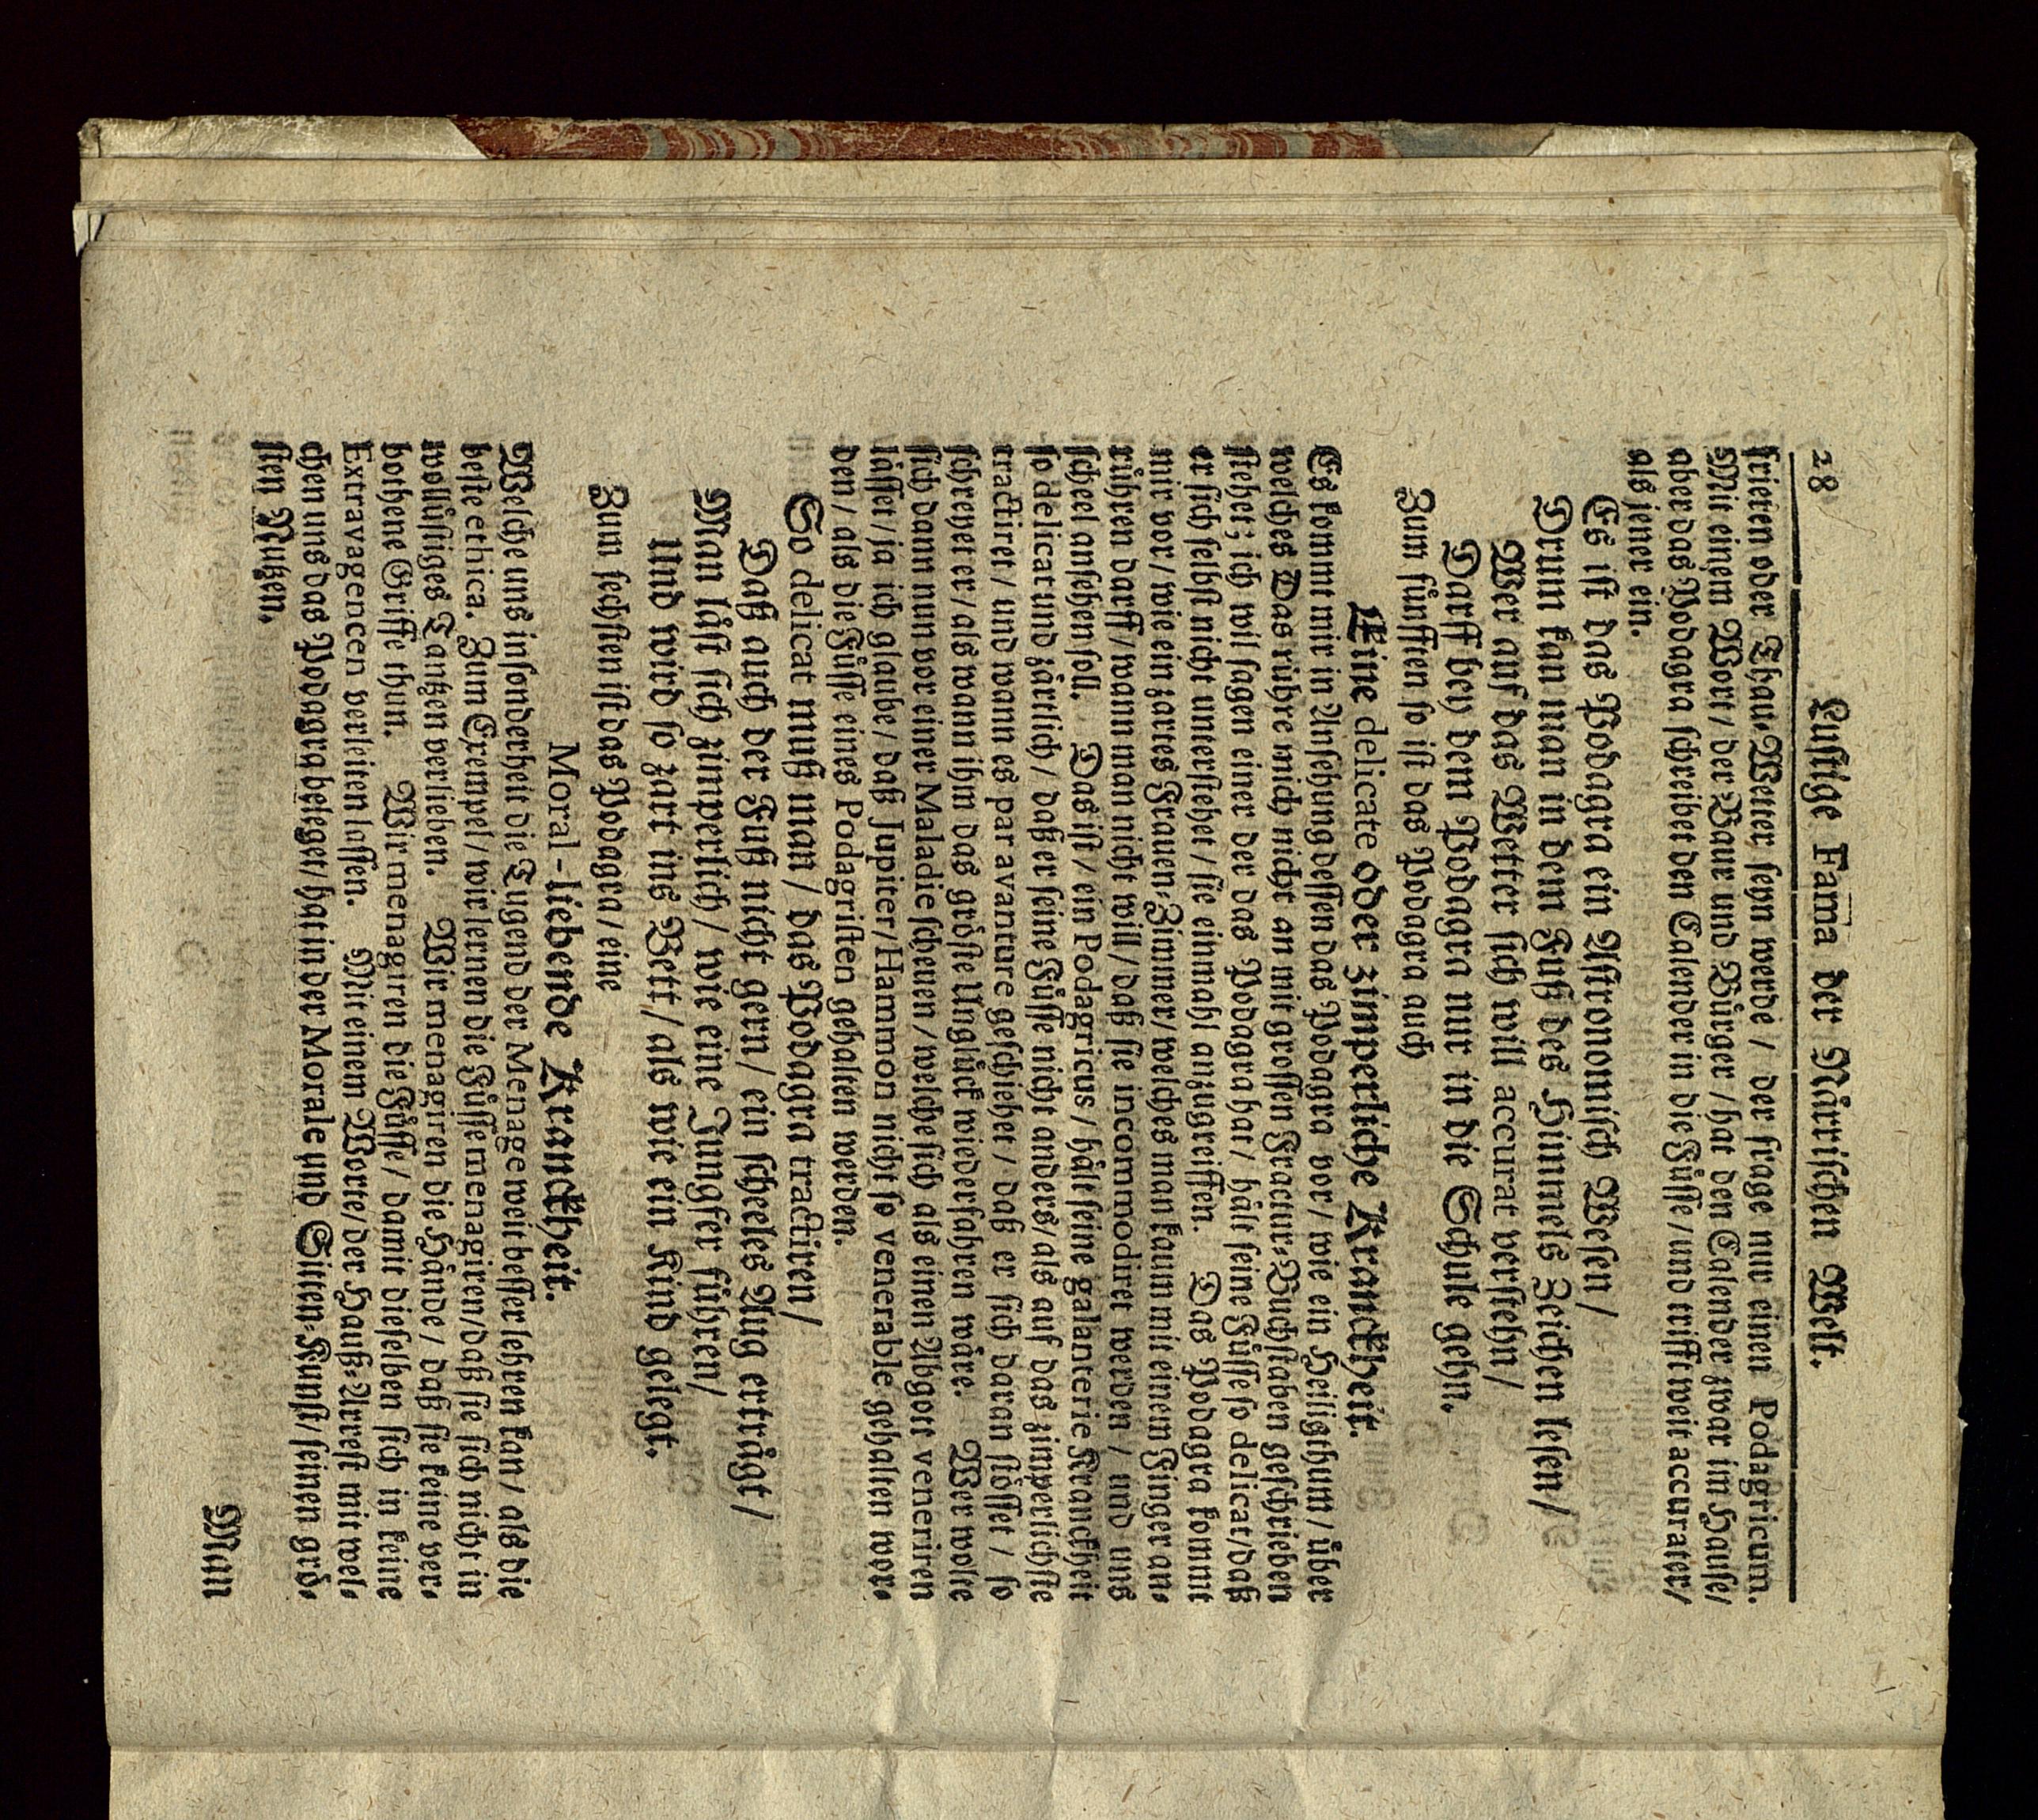 28 Lustige Fama der Närrischen Welt.
frieren oder Thau-Wetter seyn werde / der frage nur einen Podagricum.
Mit einem Wort / der Baur und Bürger / hat den Calender zwar im Hause/
aber das Podagra schreibet den Calender in die Füsse / und trifft weit accurater/
als jener ein.
Es ist das Podagra ein Astronomisch Wesen /
Drum kan man in dem Fuß des Himmels Zeichen lesen /
Wer auf das Wetter sich will accurat verstehn /
Darff bey dem Podagra nur in die Schule gehn.
Zum fünfften so ist das Podagra auch
Eine delicate oder zimperliche Kranckheit.
Es kommt mir in Ansehung dessen das Podagra vor / wie ein Heiligthum / über
welches Das rühre mich nicht an mit grossen Fractur-Buchstaben geschrieben
stehet; ich wil sagen einer der das Podagra hat / hält seine Füsse so delicat/daß
er sich selbst nicht unterstehet / sie einmahl anzugreiffen. Das Podagra kommt
mir vor / wie ein zartes Frauen-Zimmer/welches man kaum mit einem Finger an-
rühren darff / wann man nicht will / daß sie incommodiret werden / und uns
scheel ansehen soll. Das ist / ein Podagricus / hält seine galanterie Kranckheit
so delicat und zärtlich / daß er seine Füsse nicht anders/als auf das zimperlichste
tractiret / und wann es par avanture geschiehet / daß er sich daran stösset / so
schreyet er / als wann ihm das gröste Unglück wiederfahren wäre. Wer wolte
sich dann nun vor einer Maladie scheuen / welche sich als einen Abgott veneriren
lässet/ja ich glaube / daß Jupiter/Hammon nicht so venerable gehalten wor-
den / als die Füsse eines Podagristen gehalten werden.
So delicat muß man / das Podagra tractiren /
Daß auch der Fuß nicht gern / ein scheeles Aug erträgt /
Man läst sich zimperlich / wie eine Jungfer führen /
Und wird so zart ins Bett / als wie ein Kind gelegt.
Zum sechsten ist das Podagra / eine
Moral-liebende Kranckheit.
Welche uns insonderheit die Tugend der Menage weit besser lehren kan / als die
beste ethica. Zum Exempel / wir lernen die Füsse menagiren/daß sie sich nicht in
wollüstiges Tantzen verlieben. Wir menagiren die Hände / daß sie keine ver-
bothene Griffe thun. Wir menagiren die Füsse / damit dieselben sich in keine
Extravagencen verleiten lassen. Mit einem Worte/der Hauß-Arrest mit wel-
chen uns das Podagra beleget/hat in der Morale und Sitten-Kunst / seinen grö-
sten Nutzen.
Man